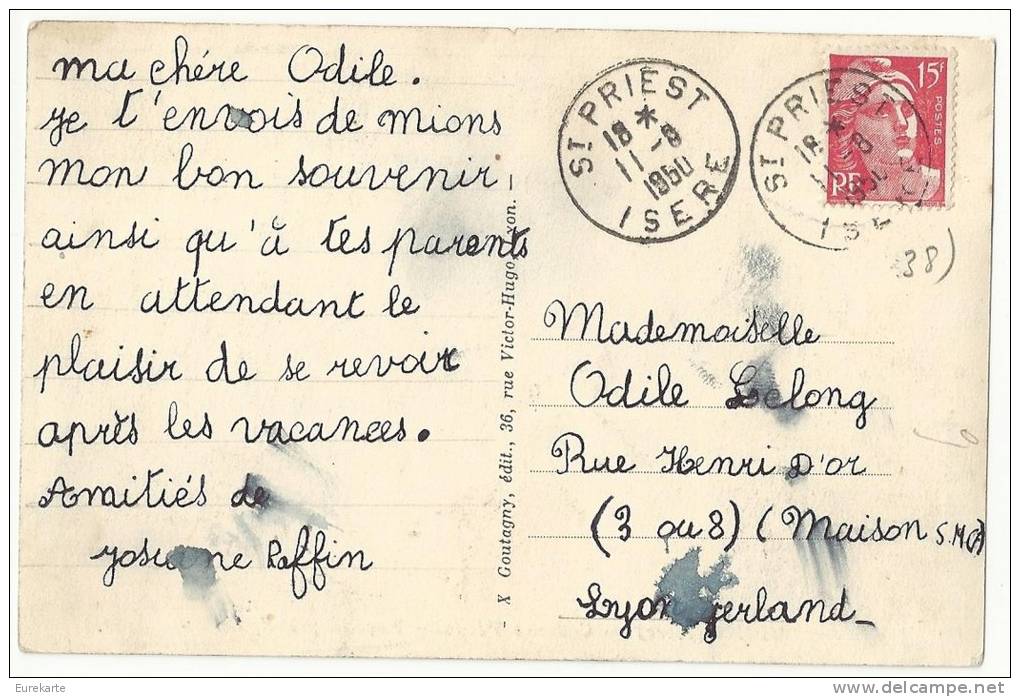 ma chére Odile.
je t'envois de mions
mon bon souvenir,
ainsi qu'à tes parents
en attendant le
plaisir de se revoir
aprés les vacances.
Amitiés de
Josiane Raffin
X Goutagny, édit., 36, rue Victor-Hugo, Lyon.
ST PRIEST
18 *
11 -8
1950
ISERE
15f
POSTES
RF
ST PRIEST
18 *
-8
ISERE
38)
Mademoiselle
Odile Lelong
Rue Henri D'or
(3 ou 8) (Maison
Lyon gerland_
Eurekarte
www.delcampe.net